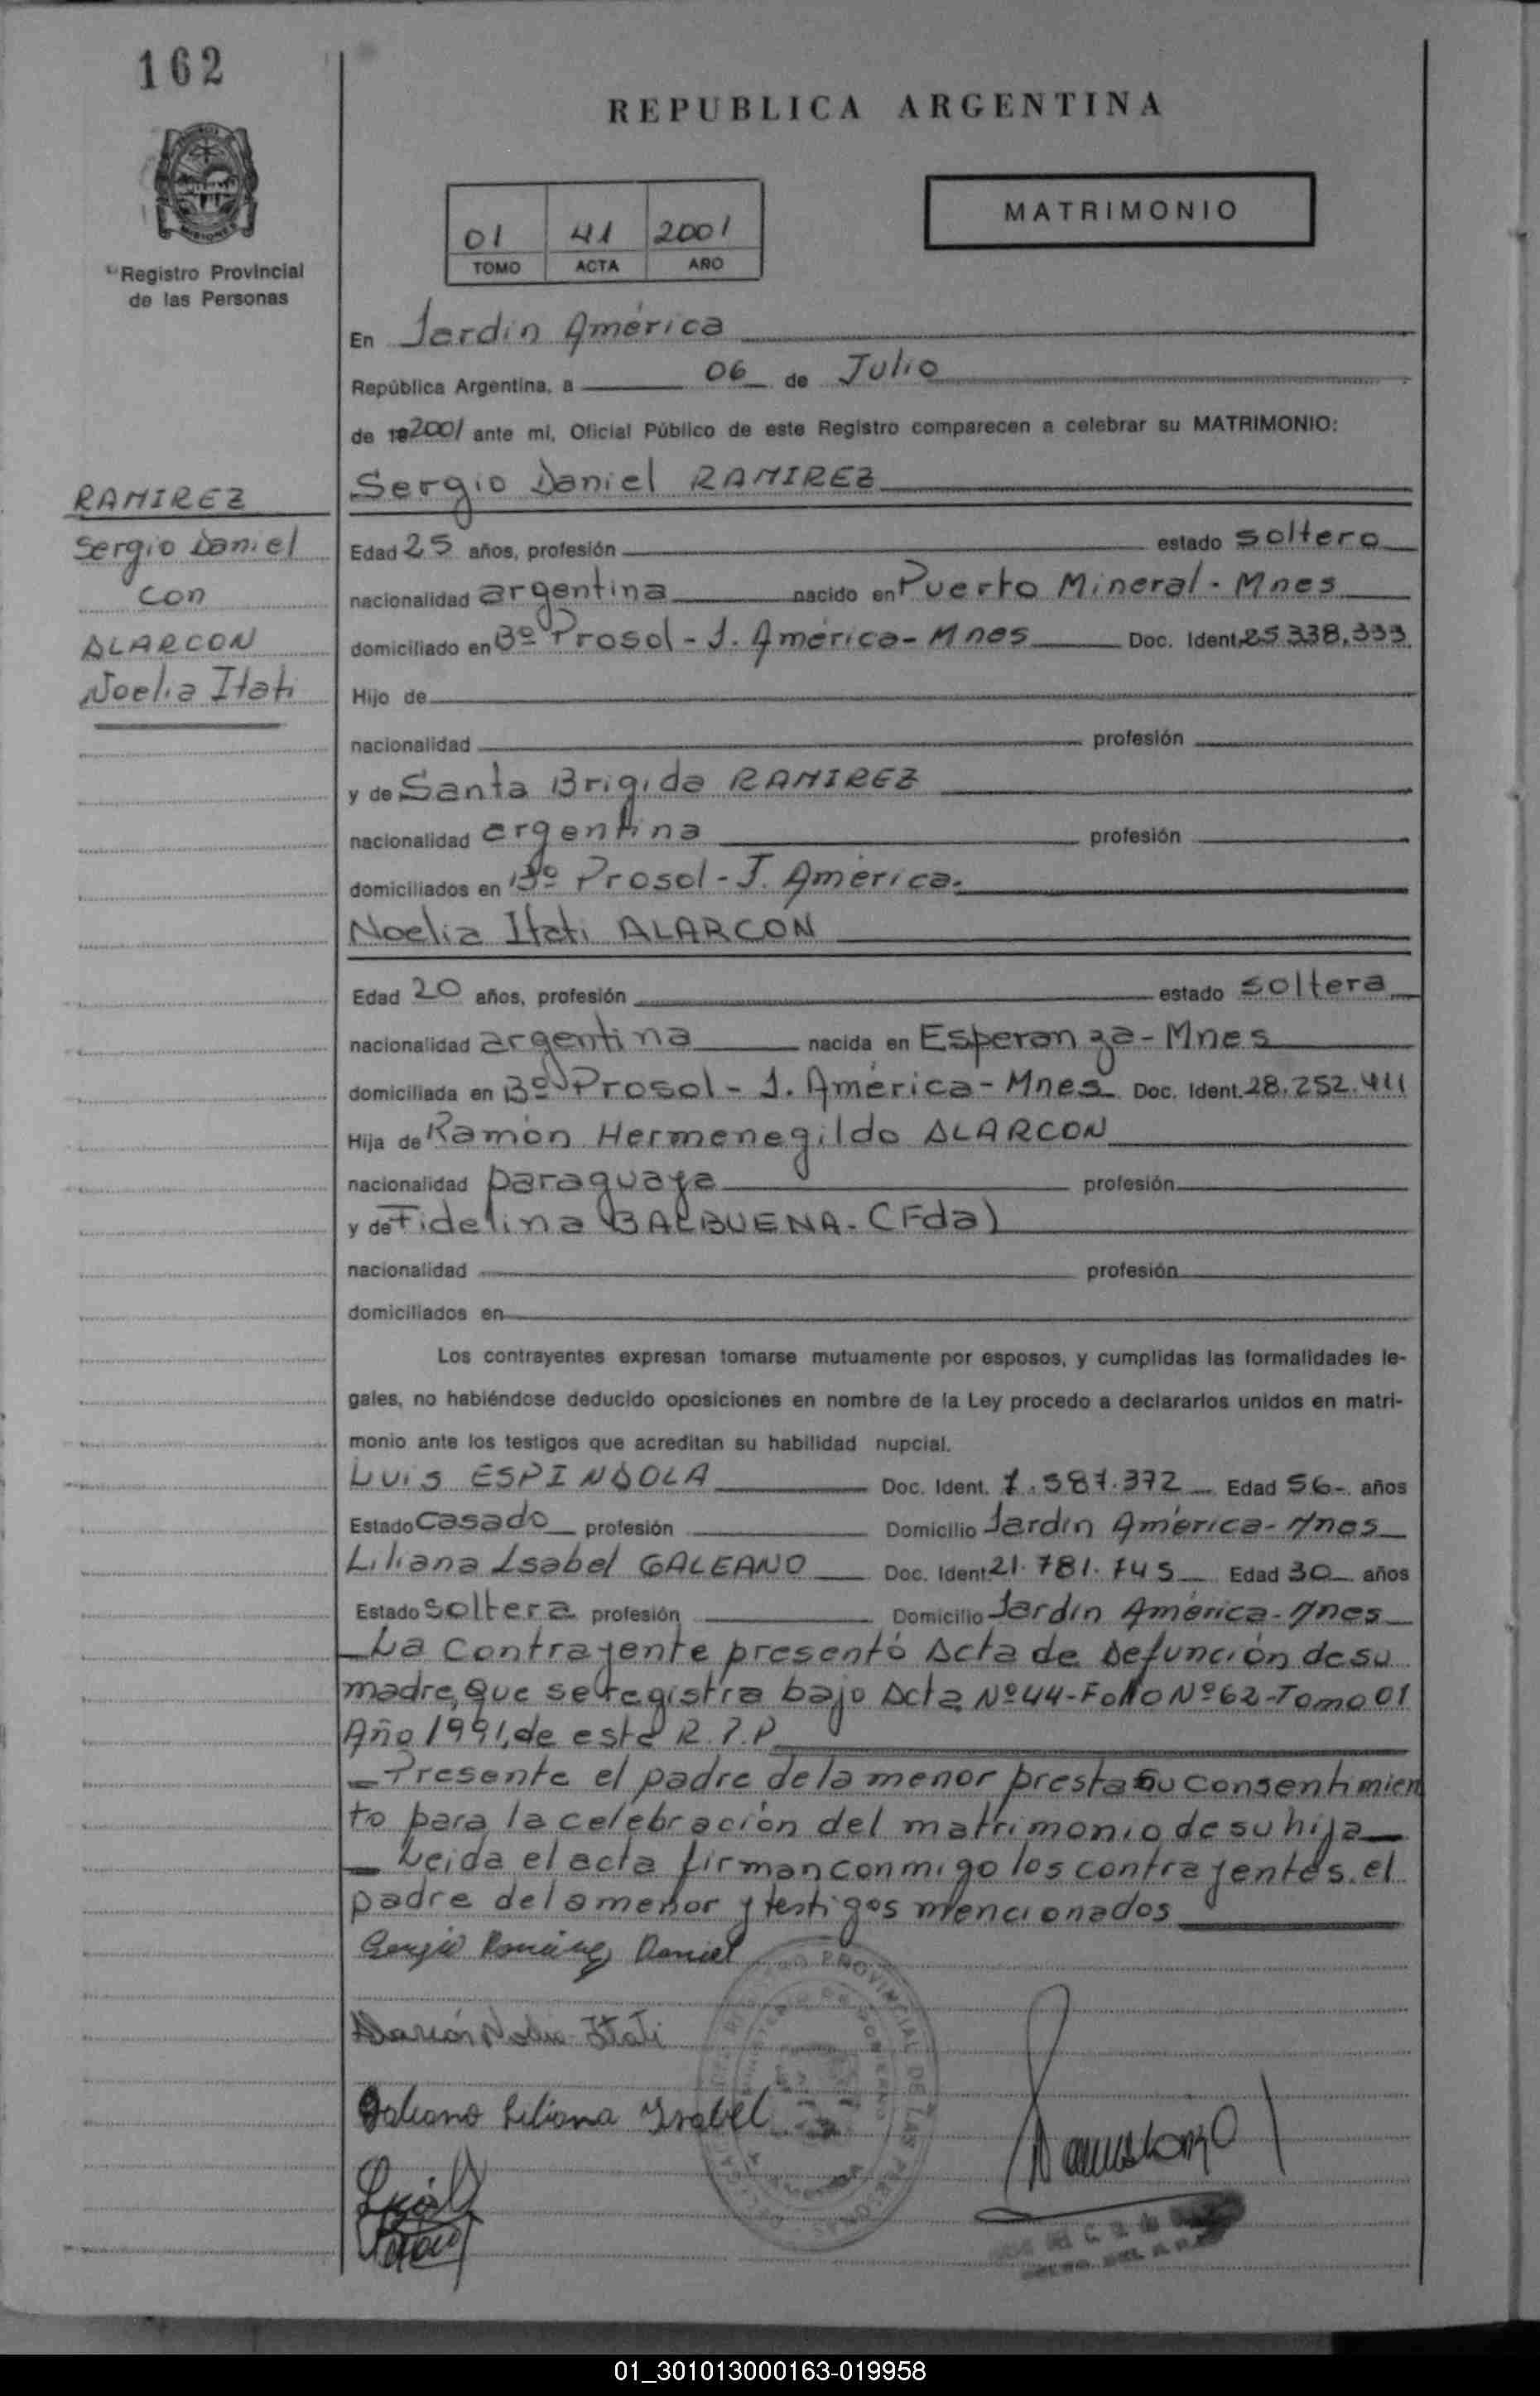 162
REPUBLICA ARGENTINA
MISIONES
Registro Provincial
de las Personas
01 41 2001
TOMO ACTA AÑO
MATRIMONIO
En Jardín América
República Argentina, a 06 de Julio
de 192001 ante mi, Oficial Público de este Registro comparecen a celebrar su MATRIMONIO:
Sergio Daniel RAMIREZ
RAMIREZ
Sergio Daniel
con
ALARCON
Noelia Itati
Edad 25 años, profesión estado soltero
nacionalidad argentina nacido en Puerto Mineral - Mnes
domiciliado en Bº Prosol - J. América - Mnes Doc. Ident. 25.338.333
Hijo de
nacionalidad profesión
y de Santa Brigida RAMIREZ
nacionalidad argentina profesión
domiciliados en Bº Prosol - J. América.
Noelia Itati ALARCON
Edad 20 años, profesión estado soltera
nacionalidad argentina nacida en Esperanza - Mnes
domiciliada en Bº Prosol - J. América - Mnes Doc. Ident. 28.252.411
Hija de Ramón Hermenegildo ALARCON
nacionalidad paraguaya profesión
y de Fidelina BALBUENA - (Fda)
nacionalidad profesión
domiciliados en
Los contrayentes expresan tomarse mutuamente por esposos, y cumplidas las formalidades le-
gales, no habiéndose deducido oposiciones en nombre de la Ley procedo a declararlos unidos en matri-
monio ante los testigos que acreditan su habilidad nupcial.
Luis ESPINDOLA Doc. Ident. 7.587.372 Edad 56 - años
Estado casado profesión Domicilio Jardín América - Mnes
Liliana Isabel GALEANO Doc. Ident. 21.781.745 Edad 30 años
Estado soltera profesión Domicilio Jardín América - Mnes
La contrayente presentó Acta de Defunción de su
madre, que se registra bajo Acta Nº 44 - Folio Nº 62 - Tomo 01
Año 1991, de este R.P.P
Presente el padre de la menor presta su consentimien
to para la celebración del matrimonio de su hija
Leida el acta firman conmigo los contrayentes, el
padre de la menor y testigos mencionados
Sergio Ramirez Daniel
Noelia Itati
Galeano Liliana Isabel
REGISTRO PROVINCIAL DE LAS PERSONAS
01_301013000163-019958